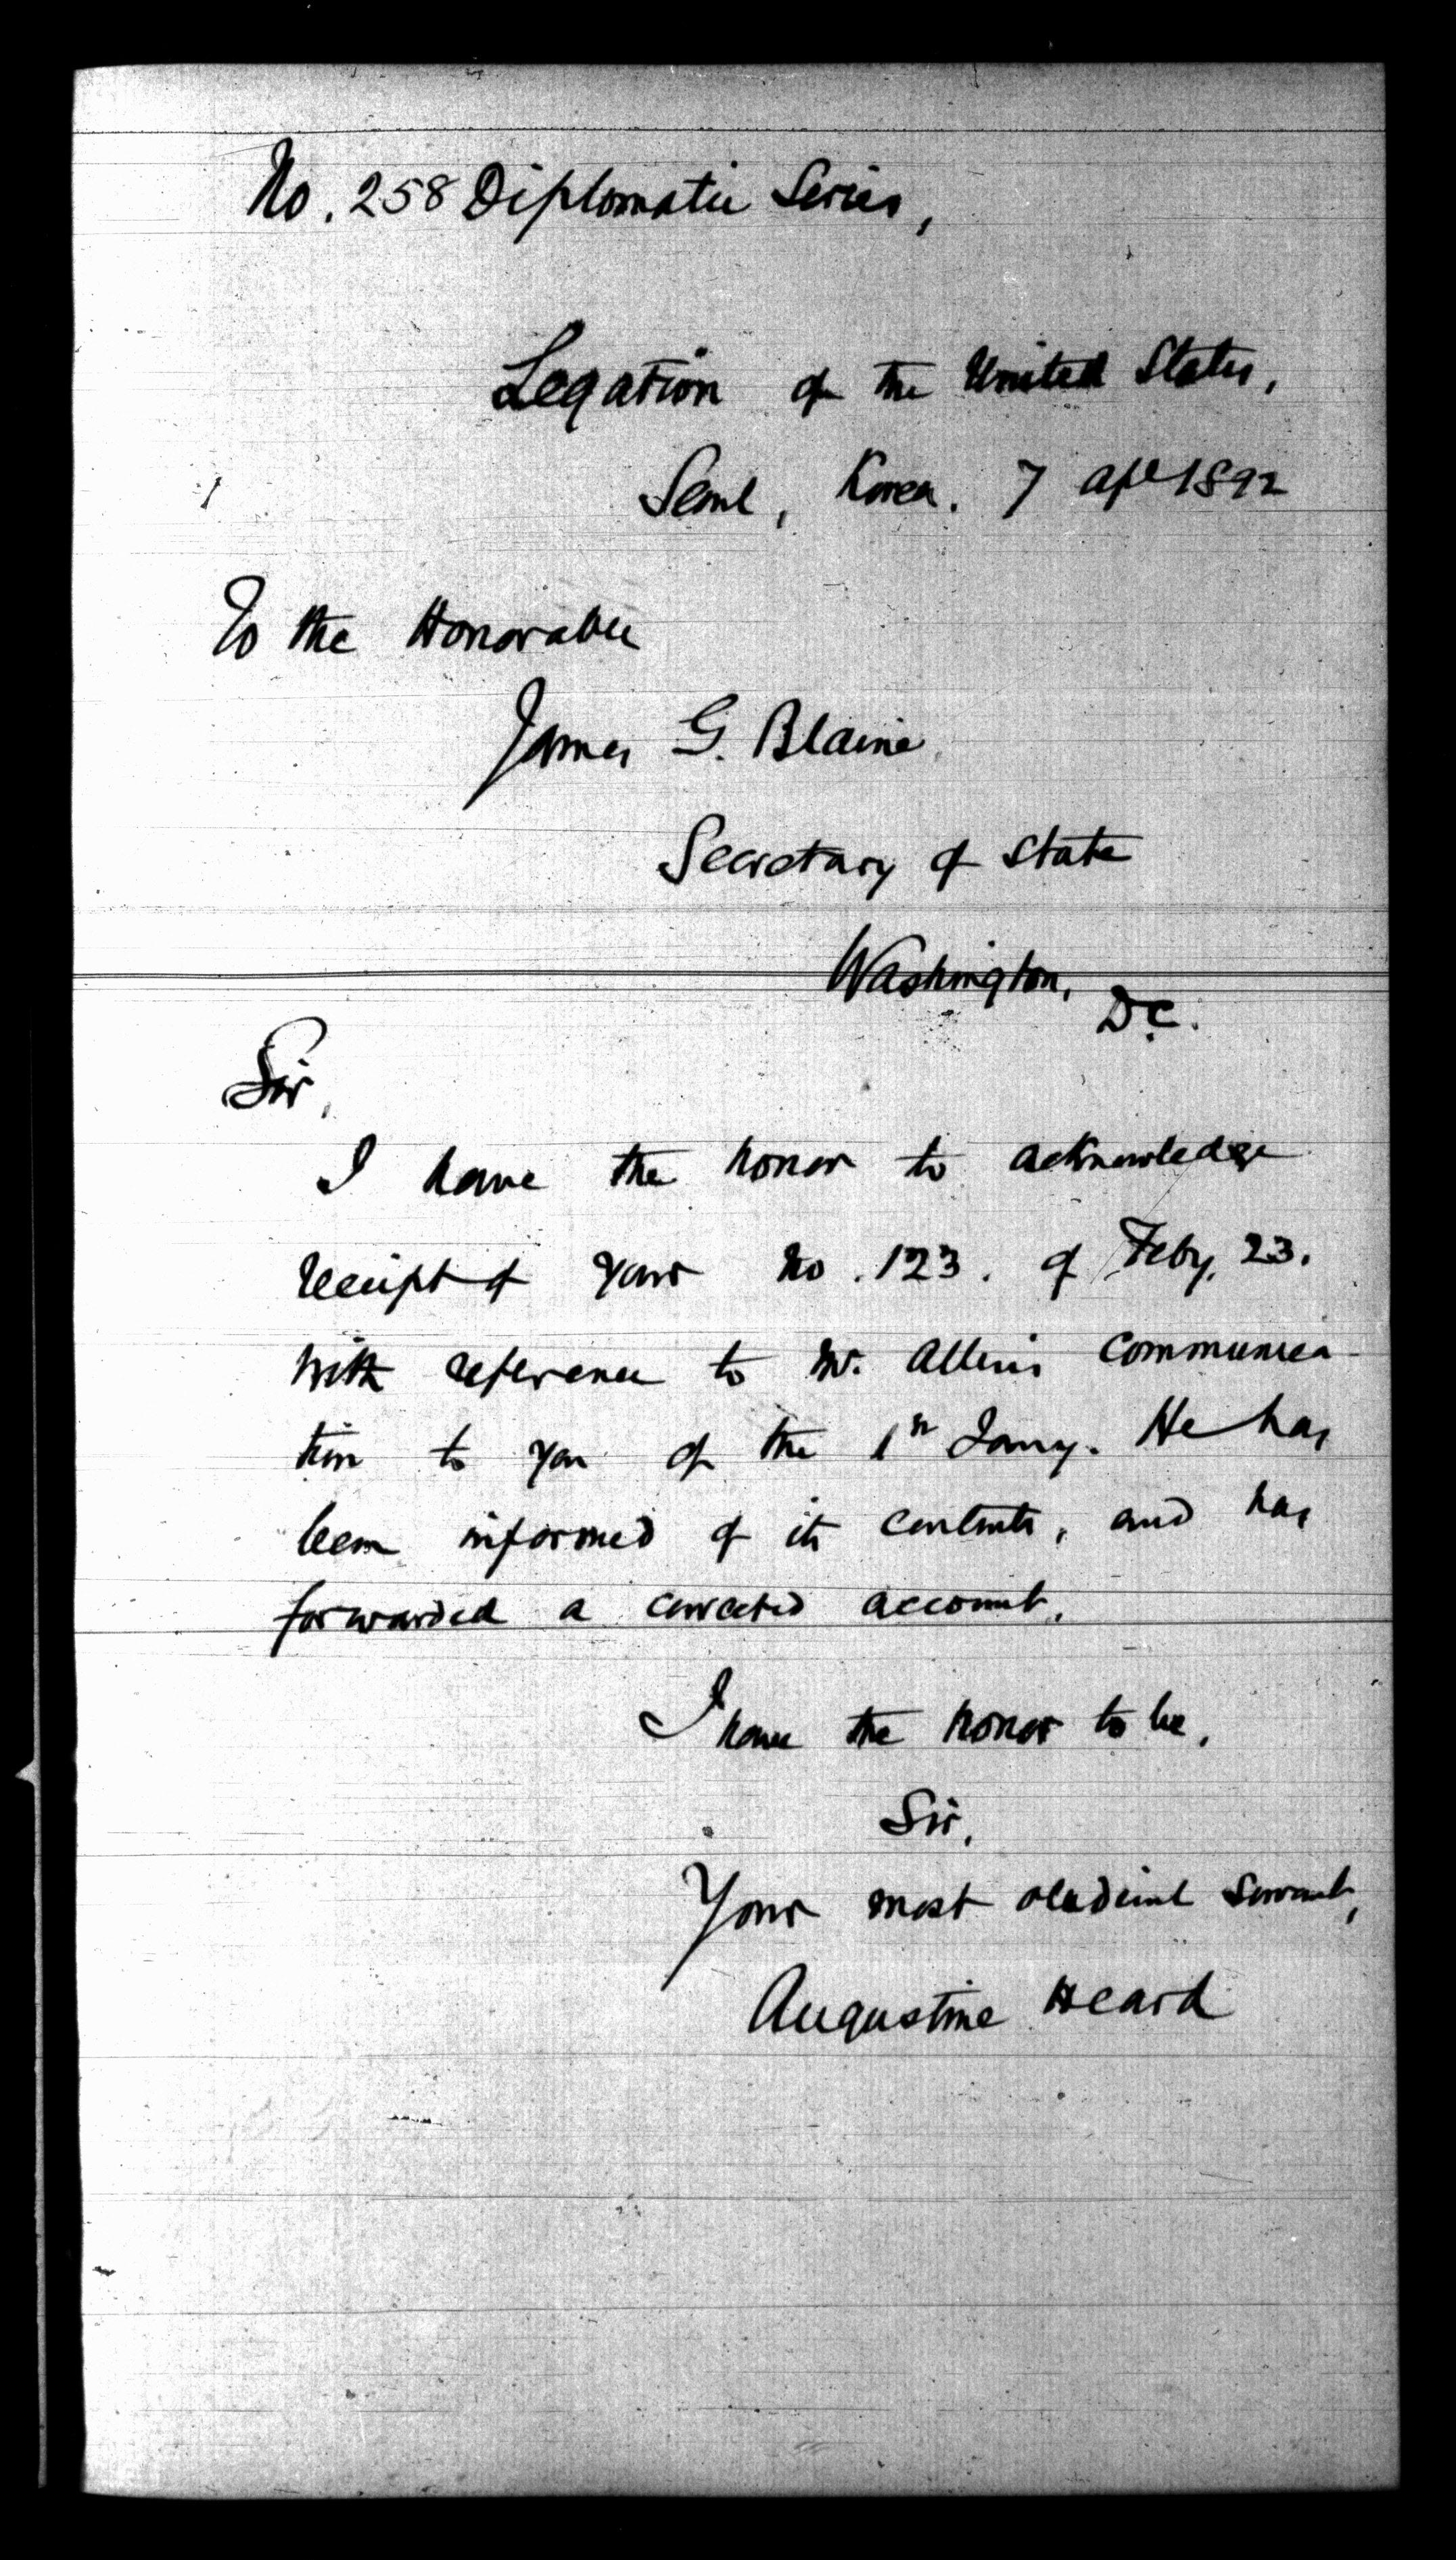 No. 258 Diplomatic Series,
Legation of the United States,
Seoul, Korea. 7 Apl 1892
To the Honorable
James G. Blaine
Secretary of State
Washington,
D.C.
Sir,
I have the honor to acknowledge
receipt of your No. 123. of Feby. 23.
with reference to Mr. Allen's communica-
tion to you of the 1st Jany. He has
been informed of its contents, and has
forwarded a corrected account.
I have the honor to be,
Sir,
Your most obedient servant,
Augustine Heard